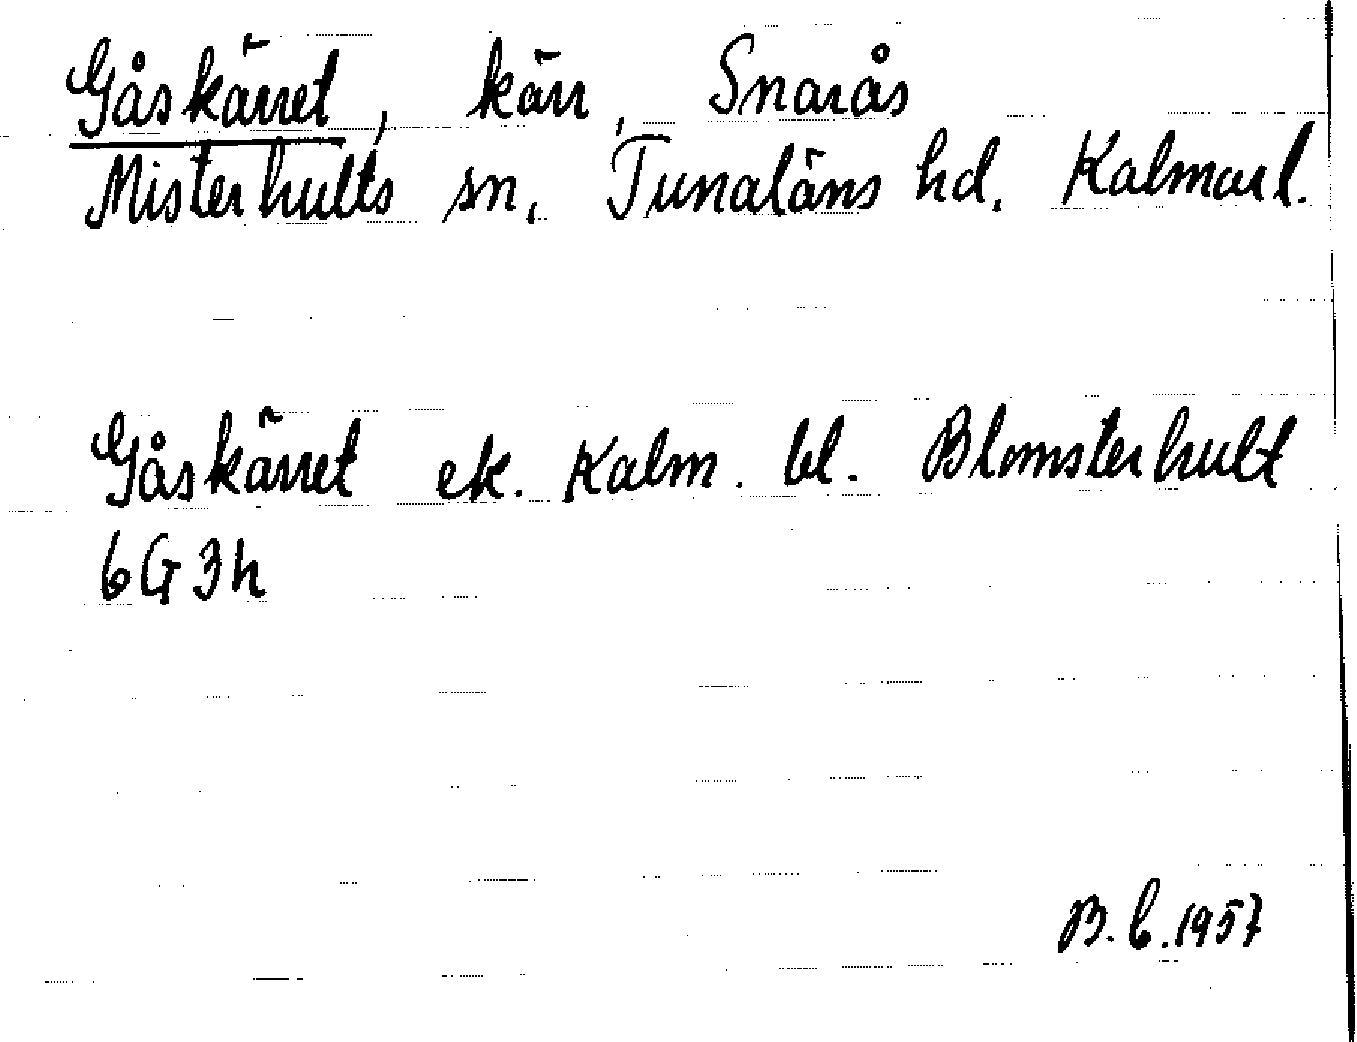 Gåskärret, kärr, Snarås
Misterhults sn, Tunaläns hd. Kalmarl.
Gåskärret ek. Kalm. bl. Blomsterhult
6G3h
B.C.1957